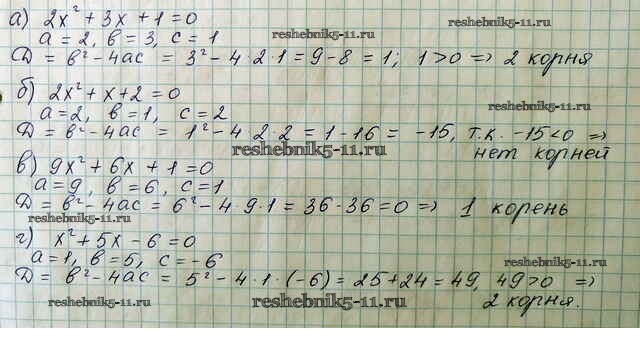 а) 2x² + 3x + 1 = 0
a = 2, в = 3, c = 1
D = в² - 4ac = 3² - 4 · 2 · 1 = 9 - 8 = 1; 1 > 0 => 2 корня
reshebnik5-11.ru
б) 2x² + x + 2 = 0
a = 2, в = 1, c = 2
reshebnik5-11.ru
D = в² - 4ac = 1² - 4 · 2 · 2 = 1 - 16 = -15, т.к. -15 < 0 =>
нет корней
reshebnik5-11.ru
в) 9x² + 6x + 1 = 0
a = 9, в = 6, c = 1
D = в² - 4ac = 6² - 4 · 9 · 1 = 36 - 36 = 0 => 1 корень
reshebnik5-11.ru
г) x² + 5x - 6 = 0
a = 1, в = 5, c = -6
reshebnik5-11.ru
D = в² - 4ac = 5² - 4 · 1 · (-6) = 25 + 24 = 49, 49 > 0 =>
2 корня.
reshebnik5-11.ru
reshebnik5-11.ru
reshebnik5-11.ru